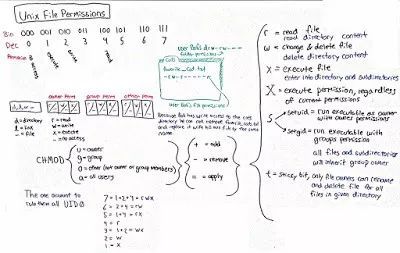 Unix File Permissions
Bin 000 001 010 011 100 101 110 111
Dec 0 1 2 3 4 5 6 7
no access
execute
write
read
user Bob's drw-rw----
folder permissions
Bob
favorite_cat.txt
-rw-r-----
user Rob's file permissions
owner perm
group perm
other perm
d,l,-
d = directory
l = link
- = file
r = read
w = write
x = execute
- = no access
CHMOD
u = owner
g = group
o = other (not owner or group members)
a = all users
+ = add
- = remove
= = apply
The one account to
rule them all UID 0
7 = 1+2+4 = rwx
6 = 2+4 = rw
5 = 1+4 = rx
4 = r
3 = 1+2 = wx
2 = w
1 = x
r = read file
read directory content
w = change & delete file
delete directory content
x = execute file
enter into directory and subdirectories
X = execute permission, regardless
of current permissions
s
setuid = run executable as owner
with owner permissions
setgid = run executable with
groups permission
all files and subdirectories
will inherit group owner
t = sticky bit, only file owners can rename
and delete file for all
files in given directory